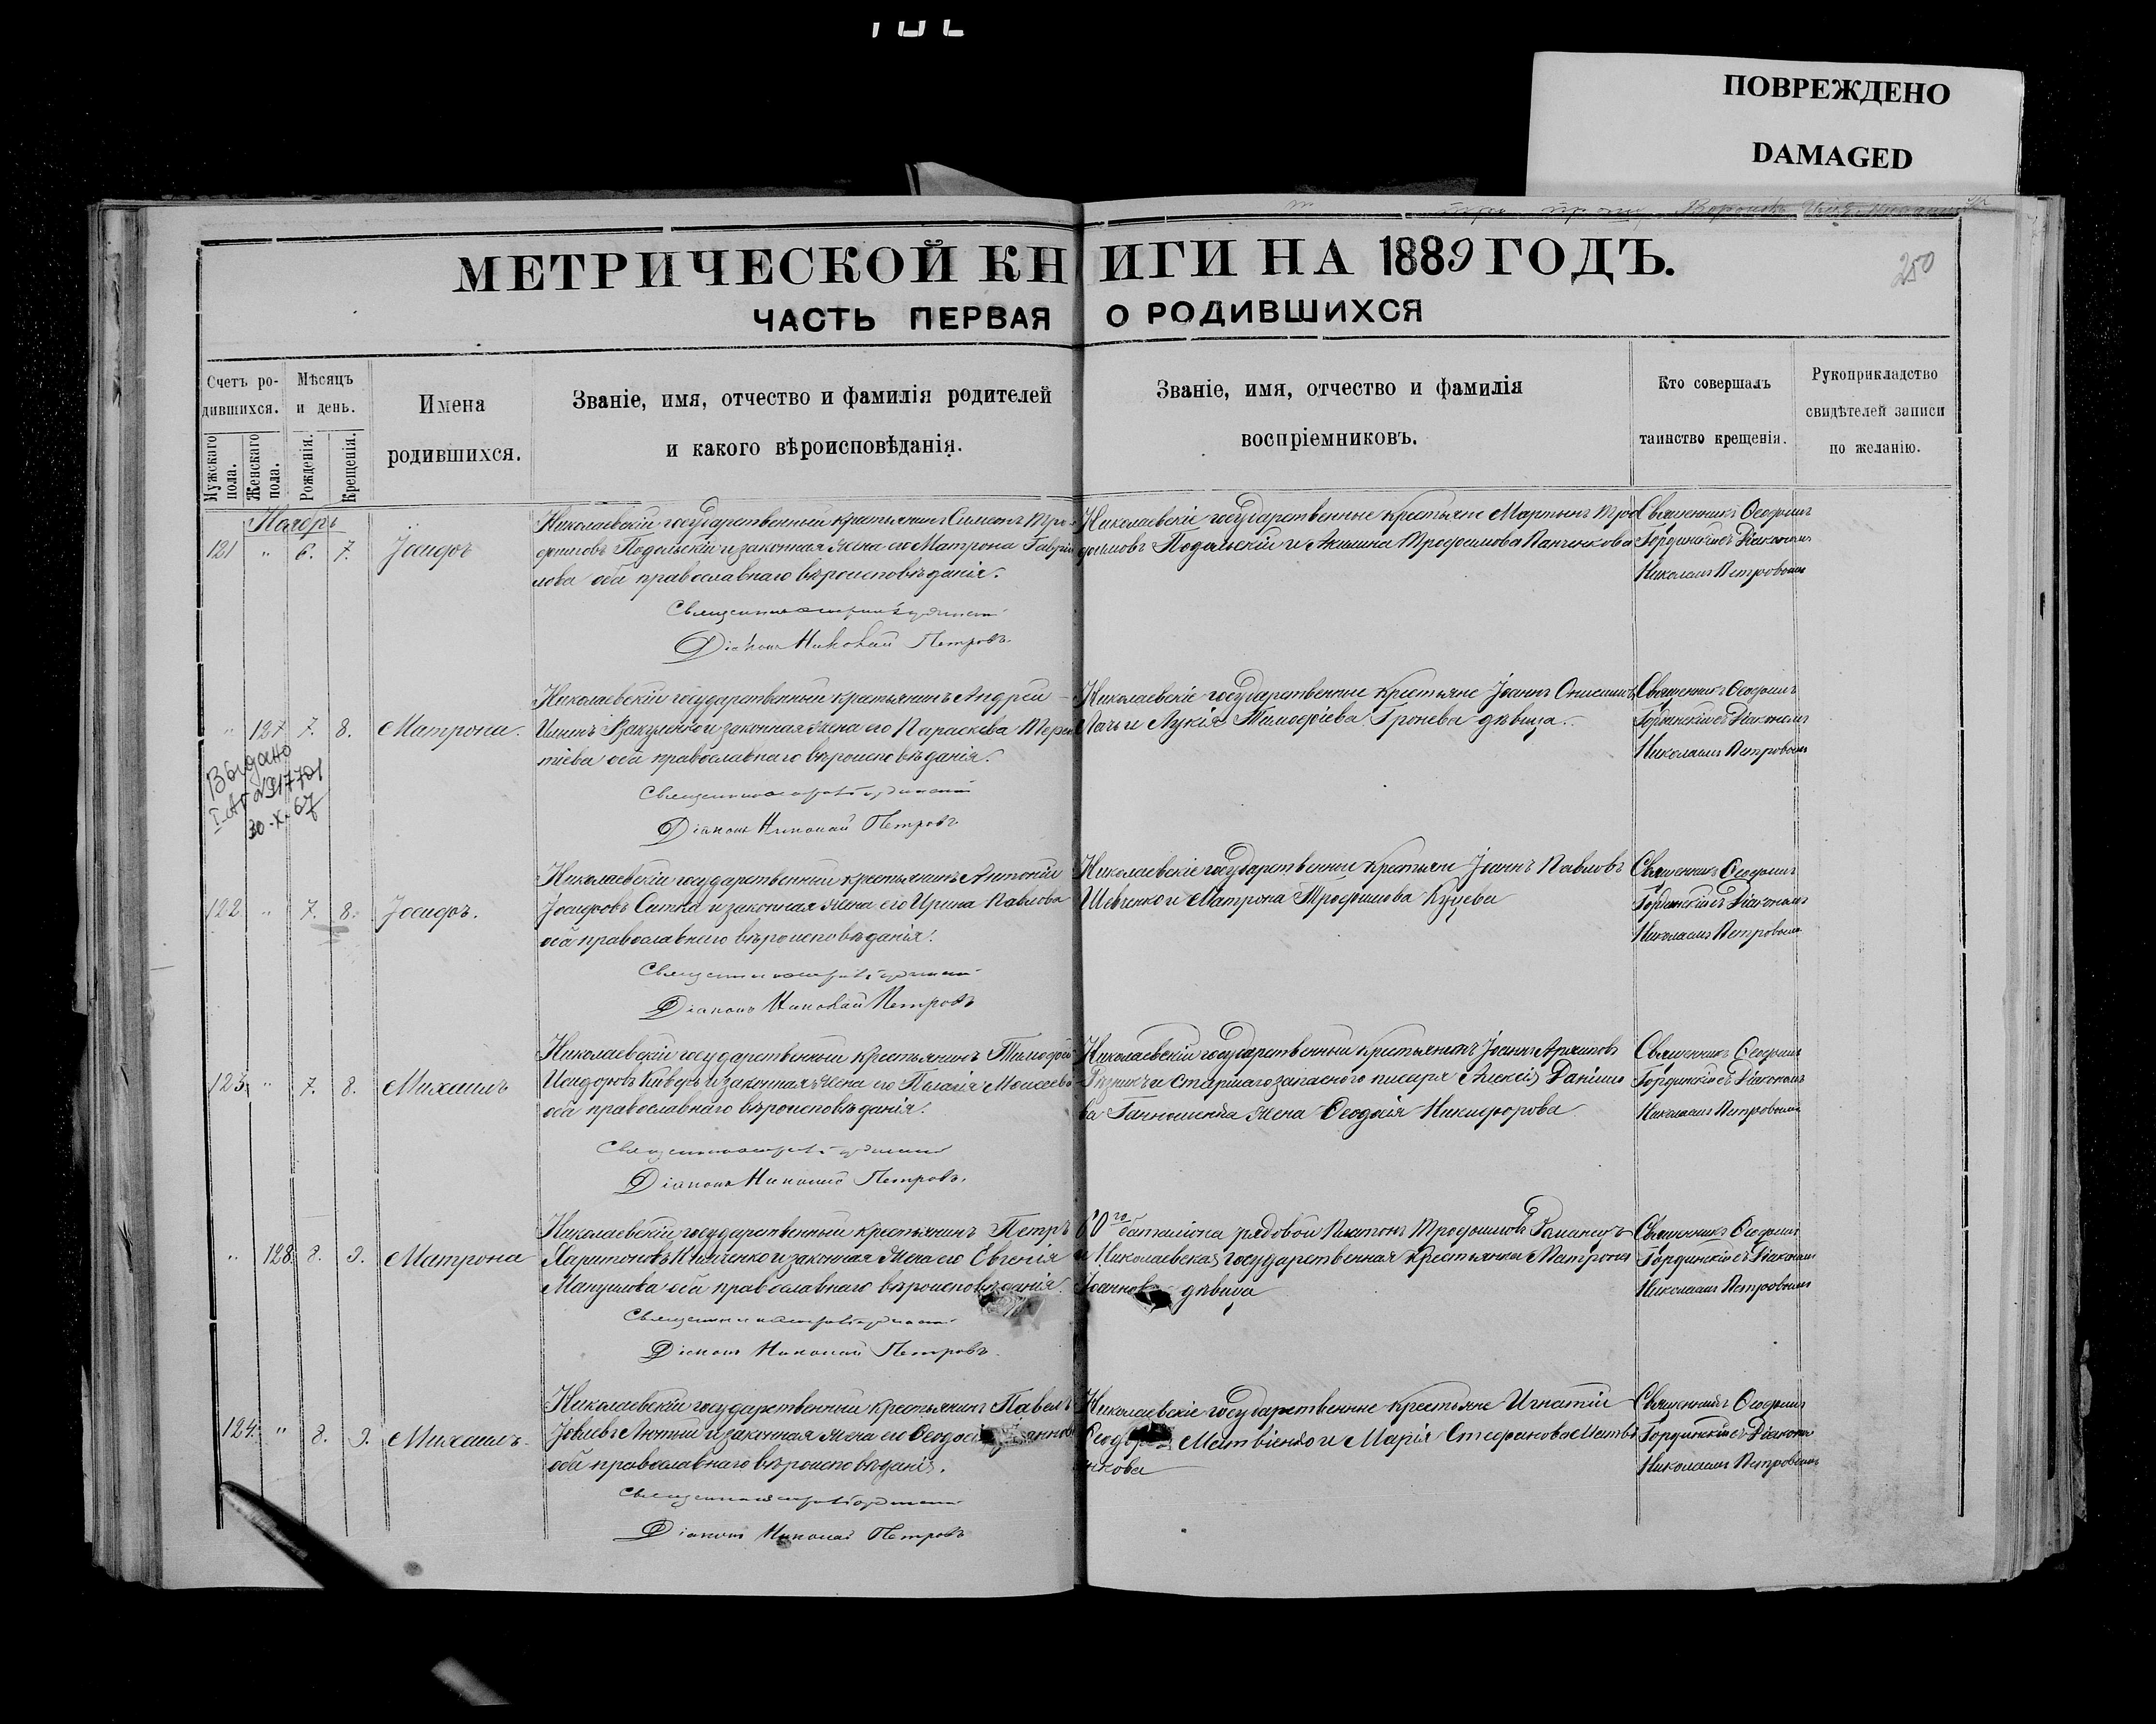 ПОВРЕЖДЕНО
DAMAGED
250
МЕТРИЧЕСКОЙ КНИГИ НА 1889 ГОДЪ.
ЧАСТЬ ПЕРВАЯ О РОДИВШИХСЯ
Счетъ ро-
дившихся.
Мужскаго
пола.
Женскаго
пола.
Мѣсяцъ
и день.
Рожденія.
Крещенія.
Имена
родившихся.
Званіе, имя, отчество и фамилія родителей
и какого вѣроисповѣданія.
Званіе, имя, отчество и фамилія
воспріемниковъ.
Кто совершалъ
таинство крещенія.
Рукоприкладство
свидѣтелей записи
по желанію.
Ноябрь
121 " 6. 7. Іосифъ
Николаевскій государственный крестьянинъ Симеонъ Тро-
фимовъ Подольскій и законная жена его Матрона Гаврии
лова оба православнаго вѣроисповѣданія.
Діаконъ Николай Петровъ.
Николаевскіе государственные крестьяне Мартинъ Троф
фимовъ Подольскій и Трофимова Панченкова
Священникъ Ѳеодоръ
Гординскій съ Діакономъ
Николаемъ Петровымъ
" 127 7. 8. Матрона.
Выдано
30-X-67
Николаевскій государственный крестьянинъ Андрей
Ильинъ Вакуленко и законная жена его Параскева Терен
тіева оба православнаго вѣроисповѣданія.
Діаконъ Николай Петровъ
Николаевскіе государственные крестьяне Іоаннъ Онисимовъ
и Лукія Тимофіева Гронева дѣвица.
Священникъ Ѳеодоръ
Гординскій съ Діакономъ
Николаемъ Петровымъ
122 " 7. 8. Іосифъ.
Николаевскій государственный крестьянинъ Антоній
Іосифовъ Ситка и законная жена его Ирина Павлова
оба православнаго вѣроисповѣданія.
Діаконъ Николай Петровъ
Николаевскіе государственные крестьяне Іоаннъ Павловъ
Шевченко и Матрона Трофимова Куцева
Священникъ Ѳеодоръ
Гординскій съ Діакономъ
Николаемъ Петровымъ
123 " 7. 8. Михаилъ
Николаевскій государственный крестьянинъ Тимофей
Исидоровъ Киверъ и законная жена его Пелагія Моисеева
оба православнаго вѣроисповѣданія.
Діаконъ Николай Петровъ.
Николаевскій государственный крестьянинъ Іоаннъ Архиповъ
Рѣзникъ и старшаго запаснаго писаря Алексія Данило
ва жена Ѳеодосія Никифорова
Священникъ Ѳеодоръ
Гординскій съ Діакономъ
Николаемъ Петровымъ
" 128 8. 9. Матрона
Николаевскій государственный крестьянинъ Петръ
Харитоновъ и законная жена его Евгенія
оба православнаго вѣроисповѣданія.
Діаконъ Николай Петровъ.
60го баталіона рядовой Платонъ Трофимовъ
и Николаевская государственная крестьянка Матрона
дѣвица
Священникъ Ѳеодоръ
Гординскій съ Діакономъ
Николаемъ Петровымъ
124 " 8. 9. Михаилъ.
Николаевскій государственный крестьянинъ Павелъ
Іовлевъ Лютый и законная жена его
оба православнаго вѣроисповѣданія.
Діаконъ Николай Петровъ
Николаевскіе государственные крестьяне Игнатій
Матвіенко и Марія Стефанова Матвѣ
енкова
Священникъ Ѳеодоръ
Гординскій съ Діакономъ
Николаемъ Петровымъ